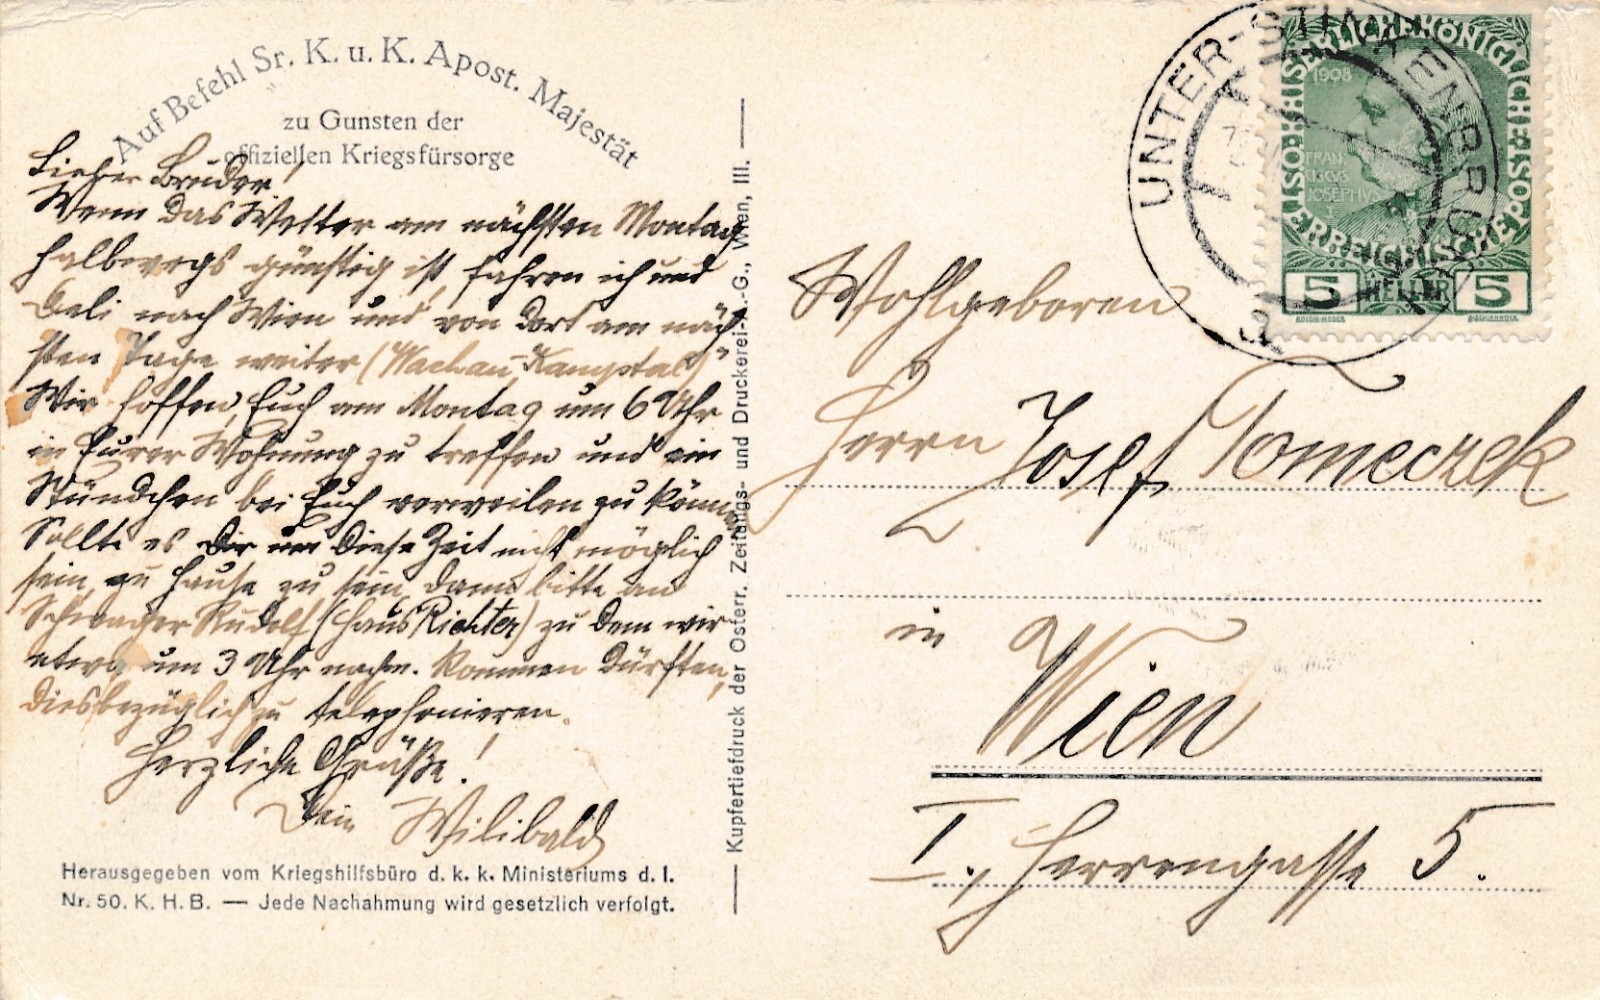 Auf Befehl Sr. K. u. K. Apost. Majestät
zu Gunsten der
offiziellen Kriegsfürsorge
Lieber Bruder!
Wenn das Wetter am nächsten Montag
halbwegs günstig ist, fahren ich und
nach Wien und von dort am näch-
sten Tage weiter (Wachau-Kamptal)
Wir hoffen, Euch am Montag um 6 Uhr
in Eurer Wohnung zu treffen und ein
Stündchen bei Euch verweilen zu können
Sollte es Dir um diese Zeit nicht möglich
sein, zu Hause zu sein, dann bitte an
Schwager Rudolf (Haus Richter) zu dem wir
etwa um 3 Uhr nachm. kommen dürften,
diesbezüglich zu telephonieren.
Herzliche Grüße!
Dein Wilibald
Herausgegeben vom Kriegshilfsbüro d. k. k. Ministeriums d. I.
Nr. 50. K. H. B. — Jede Nachahmung wird gesetzlich verfolgt.
Kupfertiefdruck der Österr. Zeitungs- und Druckerei-A.-G., Wien, III.
UNTER-
KAISERLICHE KÖNIGLICHE POST
ÖSTERREICHISCHE
1908
FRAN
CISCVS
JOSEPHVS
I
5 HELLER 5
KOLOM. MOSER
Wohlgeboren
Herrn Josef Tomeczek
in
Wien
I., Herrengasse 5.